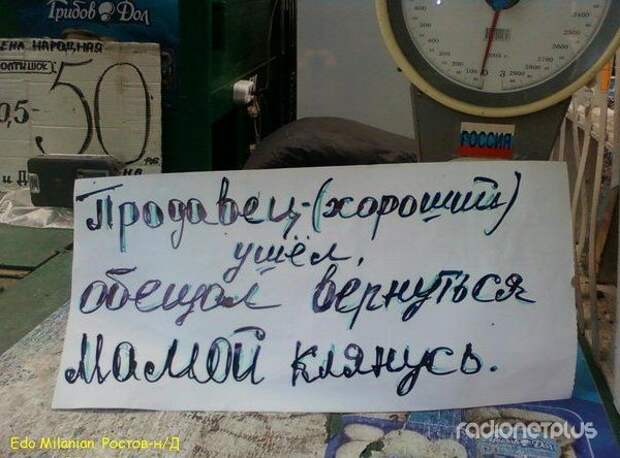 Грибов Дол
ЦЕНА НАРОДНАЯ
0,5-50
РОССИЯ
Продавец-(хороший)
ушёл,
обещал вернуться
Мамой клянусь.
Edo Milanian Ростов-н/Д
radionetplus